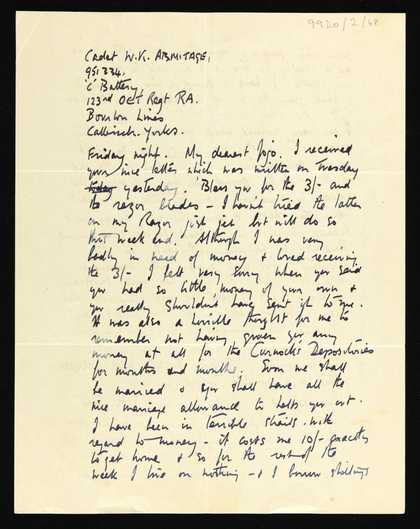 9920/2/48
Cadet W.K. ARMITAGE,
951334.
'C' Battery
123rd OCT Regt RA.
Bourlon Lines
Catterick. Yorks.
Friday night. My dearest Jojo. I received
your nice letter which was written on Tuesday
yesterday. Bless you for the 3/- and
the razor blades - I haven't tried the latter
on my Razor just yet but will do so
this week end. Although I was very
badly in need of money & loved receiving
the 3/- I felt very sorry when you said
you had so little money of your own &
you really shouldn't have sent it to me.
It was also a horrible thought for me to
remember not having given you any
money at all for the Depositories
for months and months. Soon we shall
be married & you shall have all the
nice marriage allowance to help you out.
I have been in terrible straits with
regard to money - it costs me 10/- exactly
to get home & so for the rest of the
week I live on nothing - & I borrow shillings